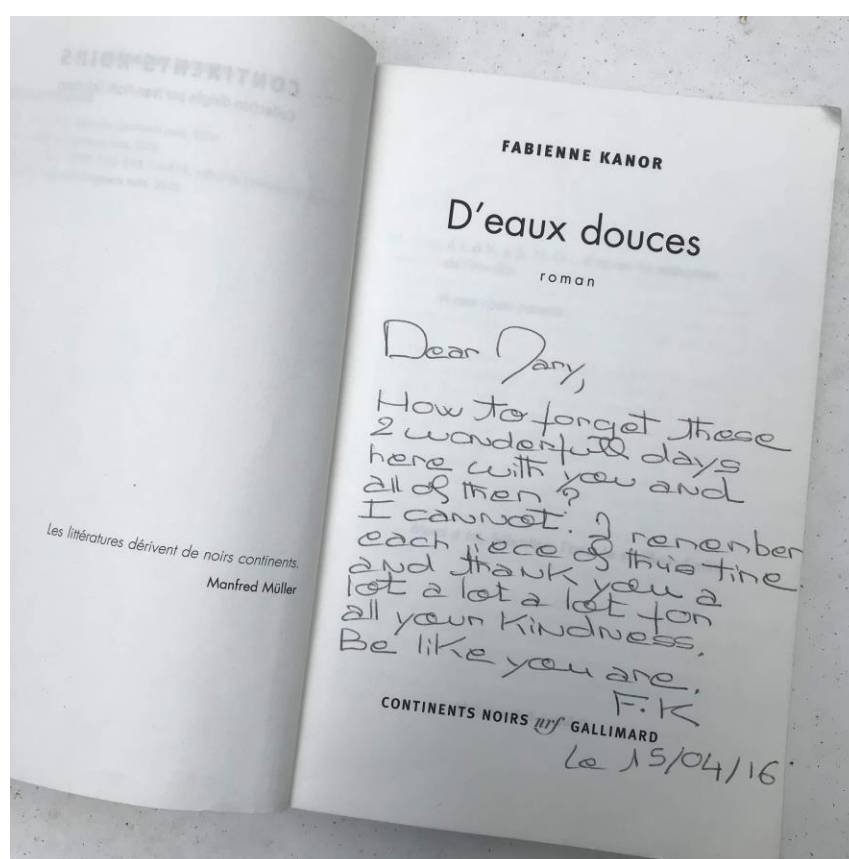 CONTINENTS NOIRS
Les littératures dérivent de noirs continents.
Manfred Müller
FABIENNE KANOR
D'eaux douces
roman
Dear Mary,
How to forget these
2 wonderfull days
here with you and
all of them ?
I cannot. I remember
each piece of this time.
and thank you a
lot a lot a lot for
all your kindness.
Be like you are.
F.K
CONTINENTS NOIRS nrf GALLIMARD
Le 15/04/16